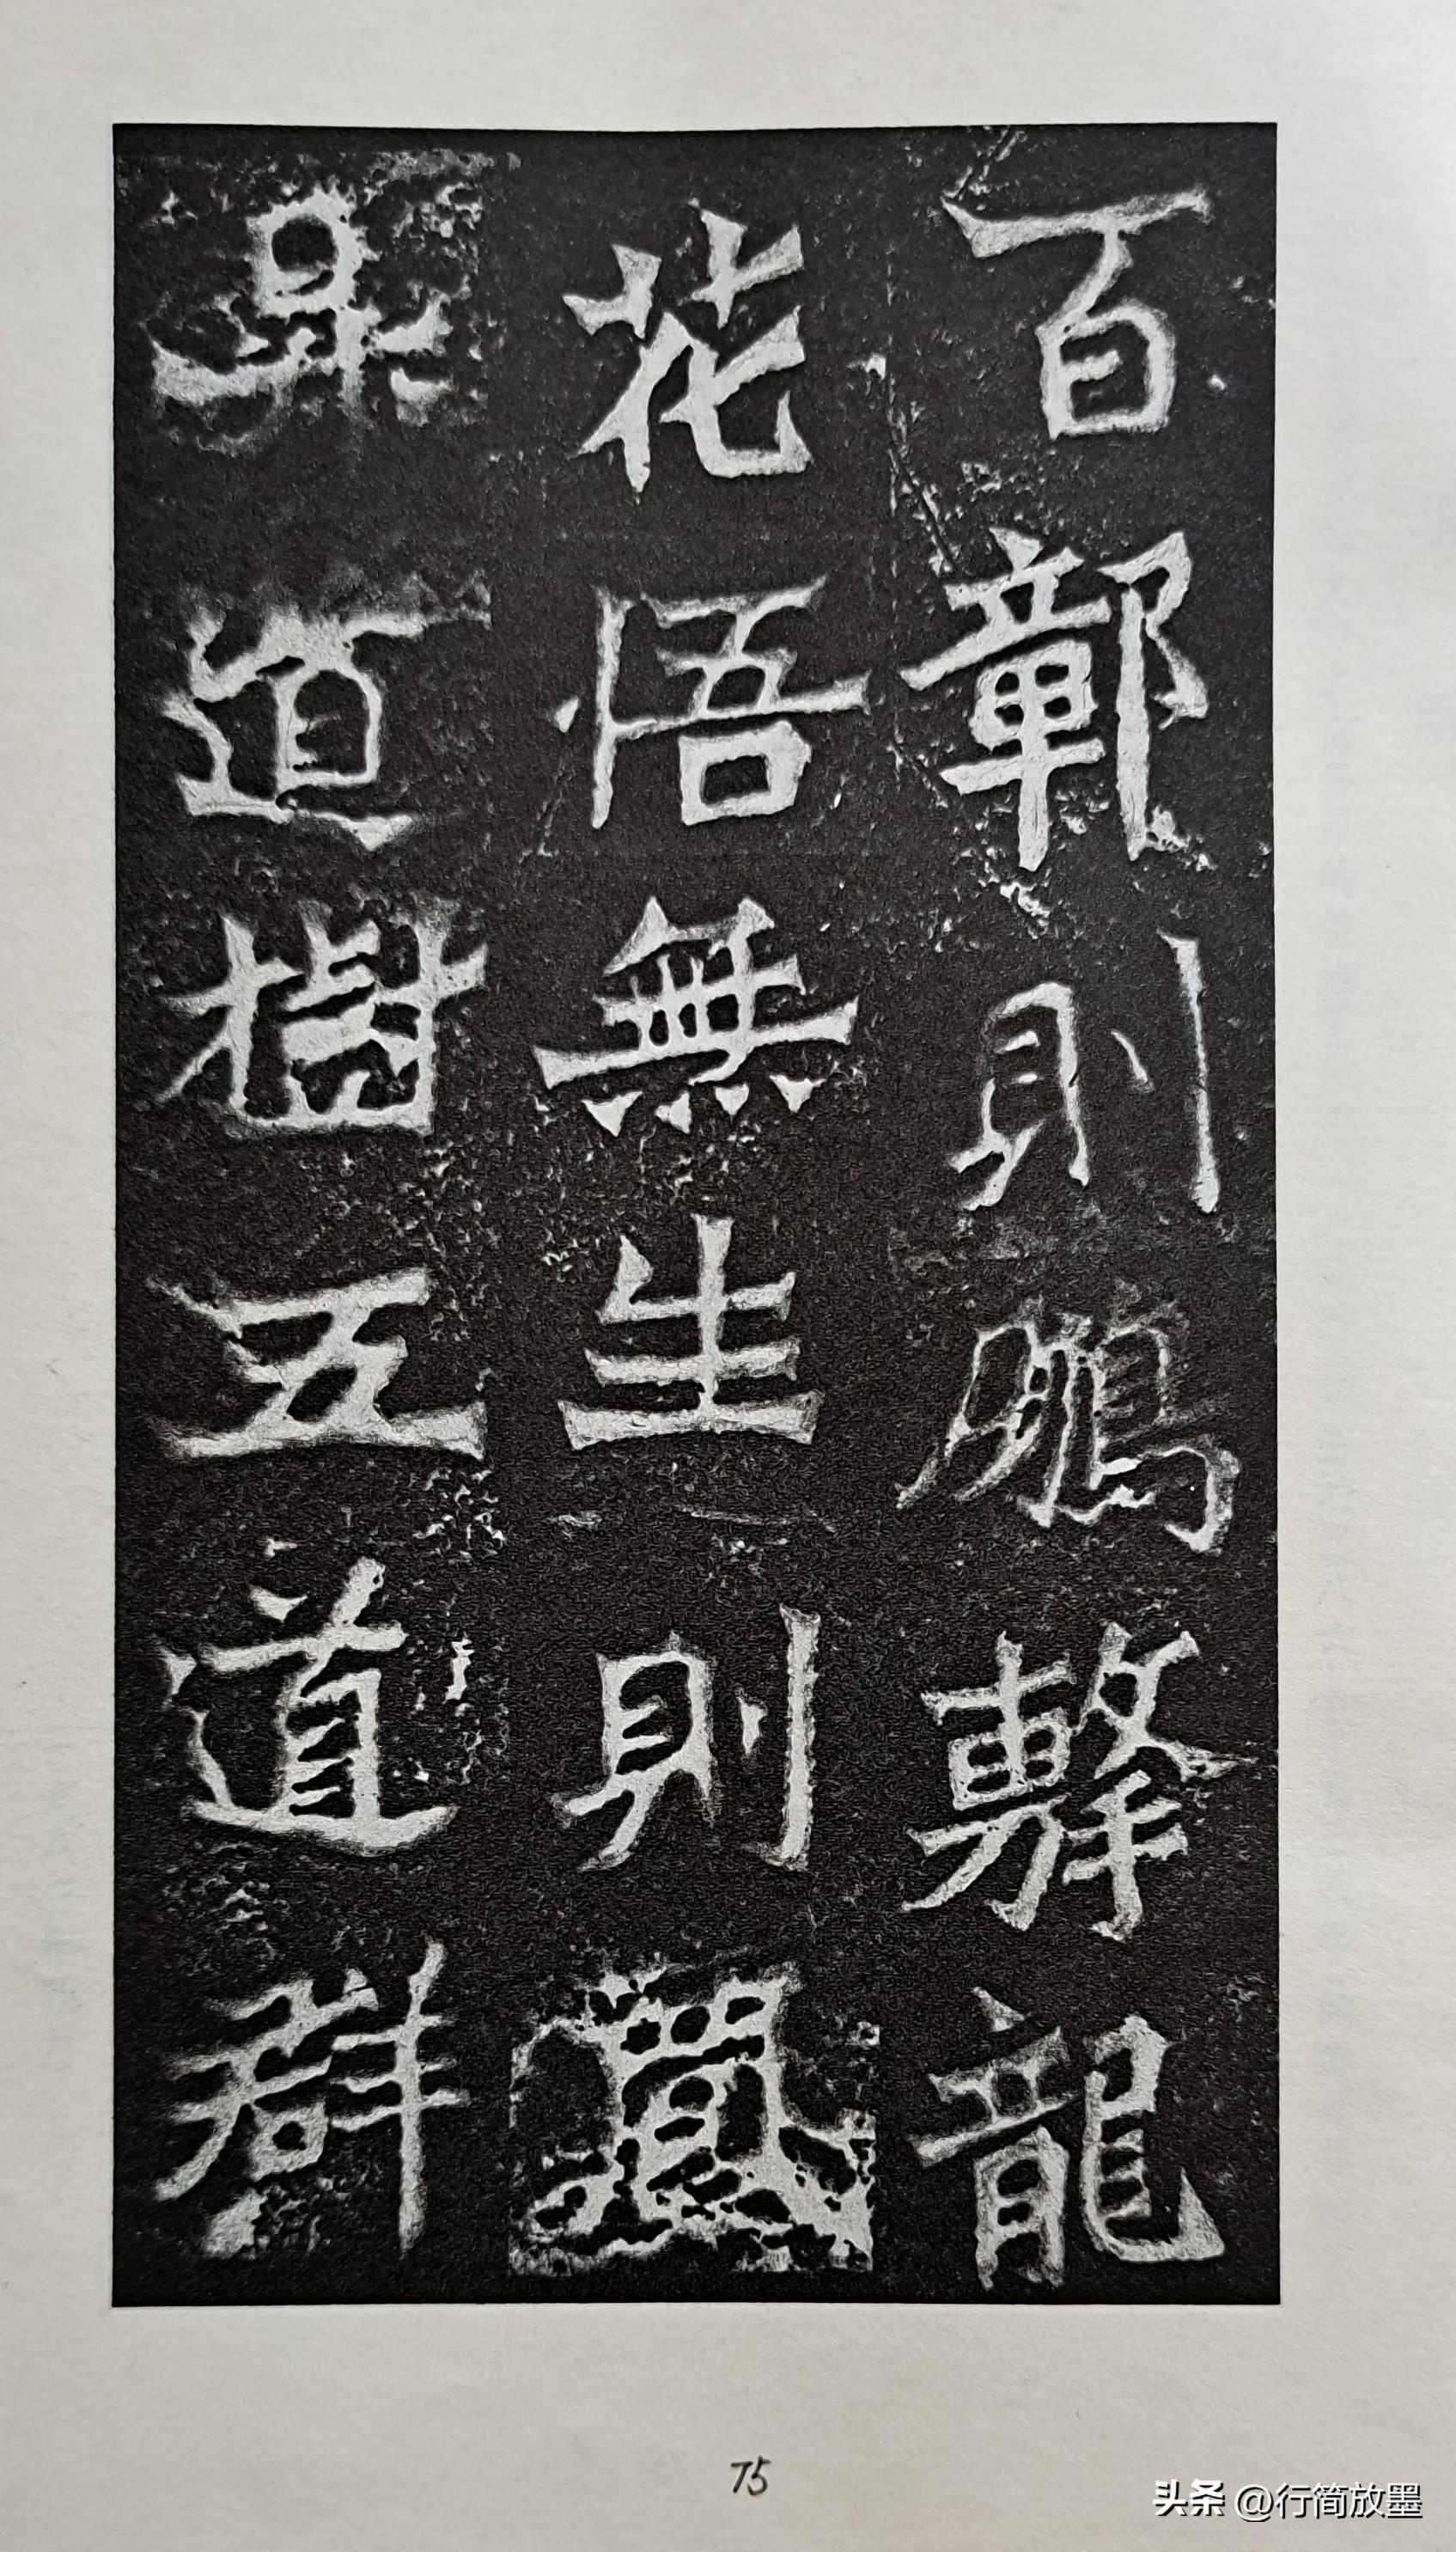 百鄣則鵬擊龍
花悟無生則鳳
昇道樹五道群
75
头条 @行简放墨